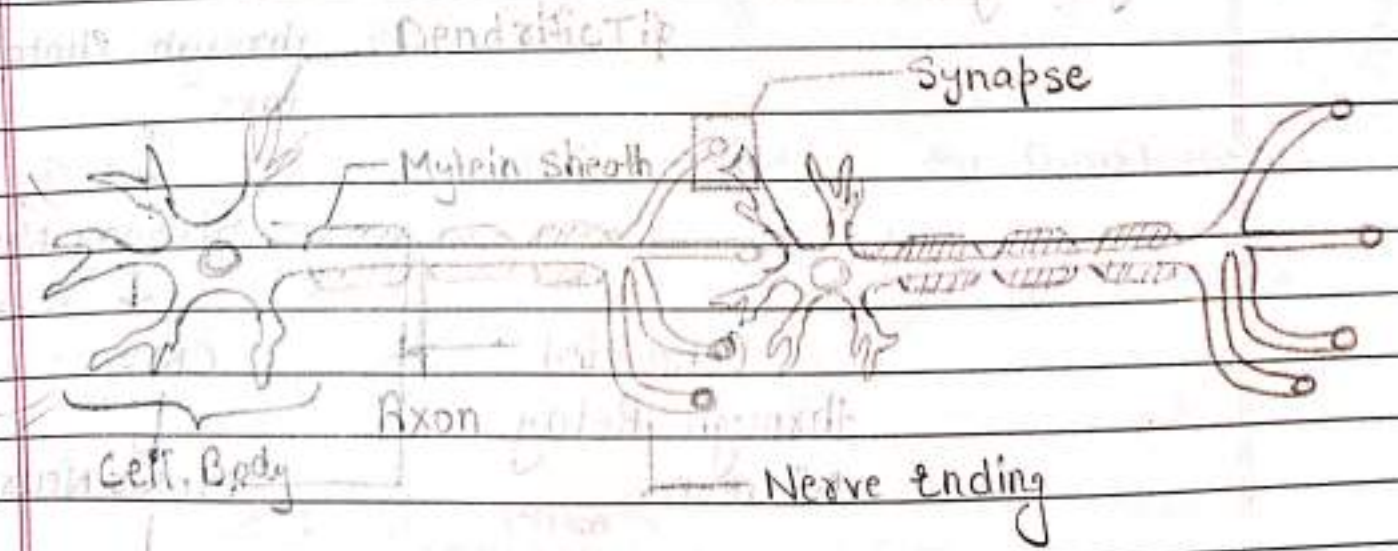 Dendritic Tip
Synapse
Mylein Sheath
Axon
Cell Body
Nerve Ending